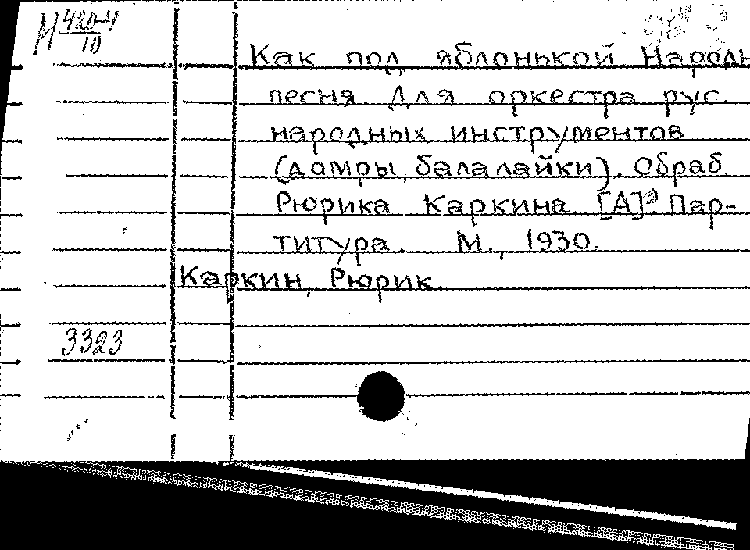 Как под яблонькой Народн
песня. Для оркестра рус.
народных инструментов
(домры, балалайки). Обраб
Рюрика Каркина [А] Пар-
титура. М., 1930.
Каркин, Рюрик
3323